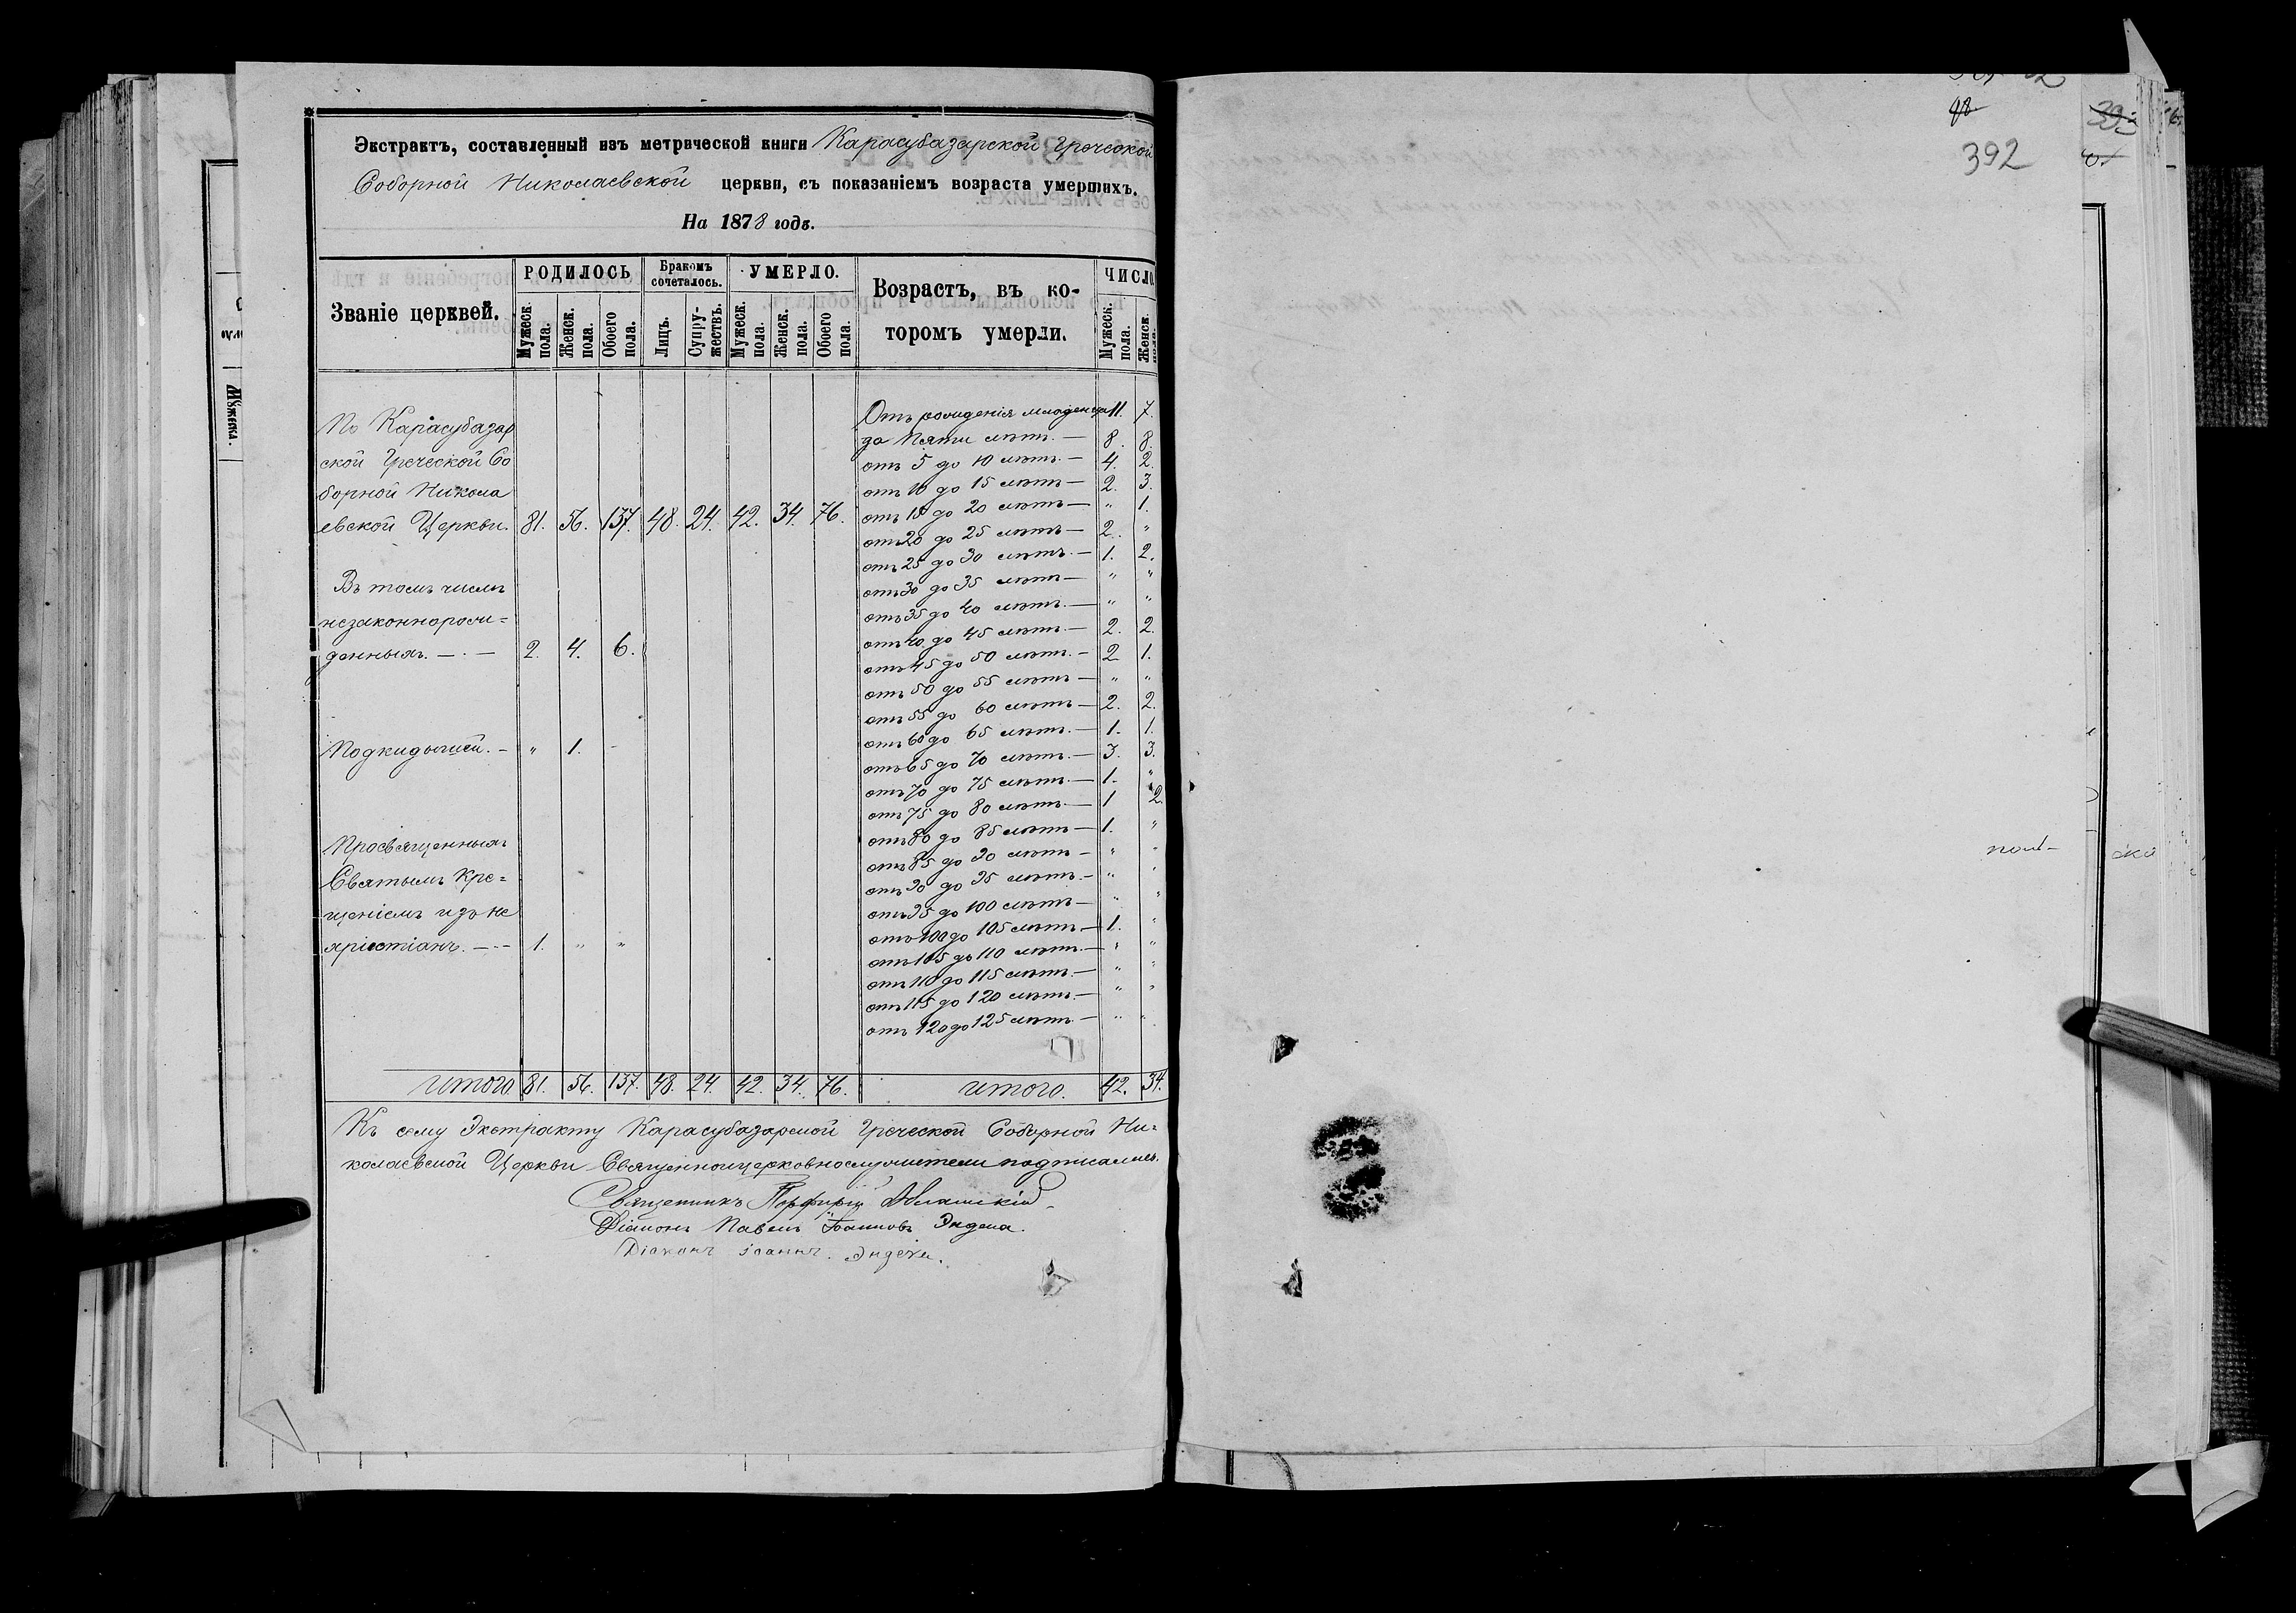 Экстрактъ, составленный изъ метрической книги Карасубазарской Греческой
Соборной Николаевской церкви, съ показаніемъ возраста умершихъ.
На 1878 годъ.
Званіе церквей.
РОДИЛОСЬ
Мужеск. пола.
Женск. пола.
Обоего пола.
Бракомъ сочеталось.
Лицъ.
Супружествъ.
УМЕРЛО.
Мужеск. пола.
Женск. пола.
Обоего пола.
Возрастъ, въ ко-
торомъ умерли.
ЧИСЛО
Мужеск. пола.
Женск. пола.
По Карасубазар
ской Греческой Со
борной Никола
евской Церкви. 81. 56. 137. 48. 24. 42. 34. 76.
Въ томъ числѣ
незаконнорож=
денныхъ. — 2. 4. 6.
Подкидышей. — " 1. -
Просвященныхъ
Святымъ Кре=
щеніемъ изъ не
христіанъ. — 1. " "
Отъ рожденія младенца 11. 7.
до пяти лѣтъ. — 8. 8.
отъ 5 до 10 лѣтъ. — 4. 2.
отъ 10 до 15 лѣтъ — 2. 3.
отъ 15 до 20 лѣтъ — " 1.
отъ 20 до 25 лѣтъ — 2. "
отъ 25 до 30 лѣтъ. — 1. 2.
отъ 30 до 35 лѣтъ — " "
отъ 35 до 40 лѣтъ. — " "
отъ 40 до 45 лѣтъ. — 2. 2.
отъ 45 до 50 лѣтъ. — 2 1.
отъ 50 до 55 лѣтъ — " "
отъ 55 до 60 лѣтъ — 2. 2.
отъ 60 до 65 лѣтъ. — 1. 1.
отъ 65 до 70 лѣтъ. — 3. 3.
отъ 70 до 75 лѣтъ. — 1. "
отъ 75 до 80 лѣтъ. — 1 2.
отъ 80 до 85 лѣтъ — 1. "
отъ 85 до 90 лѣтъ — " "
отъ 90 до 95 лѣтъ. — " "
отъ 95 до 100 лѣтъ — " "
отъ 100 до 105 лѣтъ — 1. "
отъ 105 до 110 лѣтъ. — " "
отъ 110 до 115 лѣтъ. — " "
отъ 115 до 120 лѣтъ. — " "
отъ 120 до 125 лѣтъ. — " "
Итого 81. 56. 137. 48. 24. 42. 34. 76. Итого. 42. 34.
Къ сему Экстракту Карасубазарской Греческой Соборной Ни-
колаевской Церкви Священноцерковнослужители подписались.
Священникъ Порфирій
Діаконъ Павелъ Іоанновъ Эндека.
Діаконъ Іоаннъ. Эндека.
392
Мужеска.